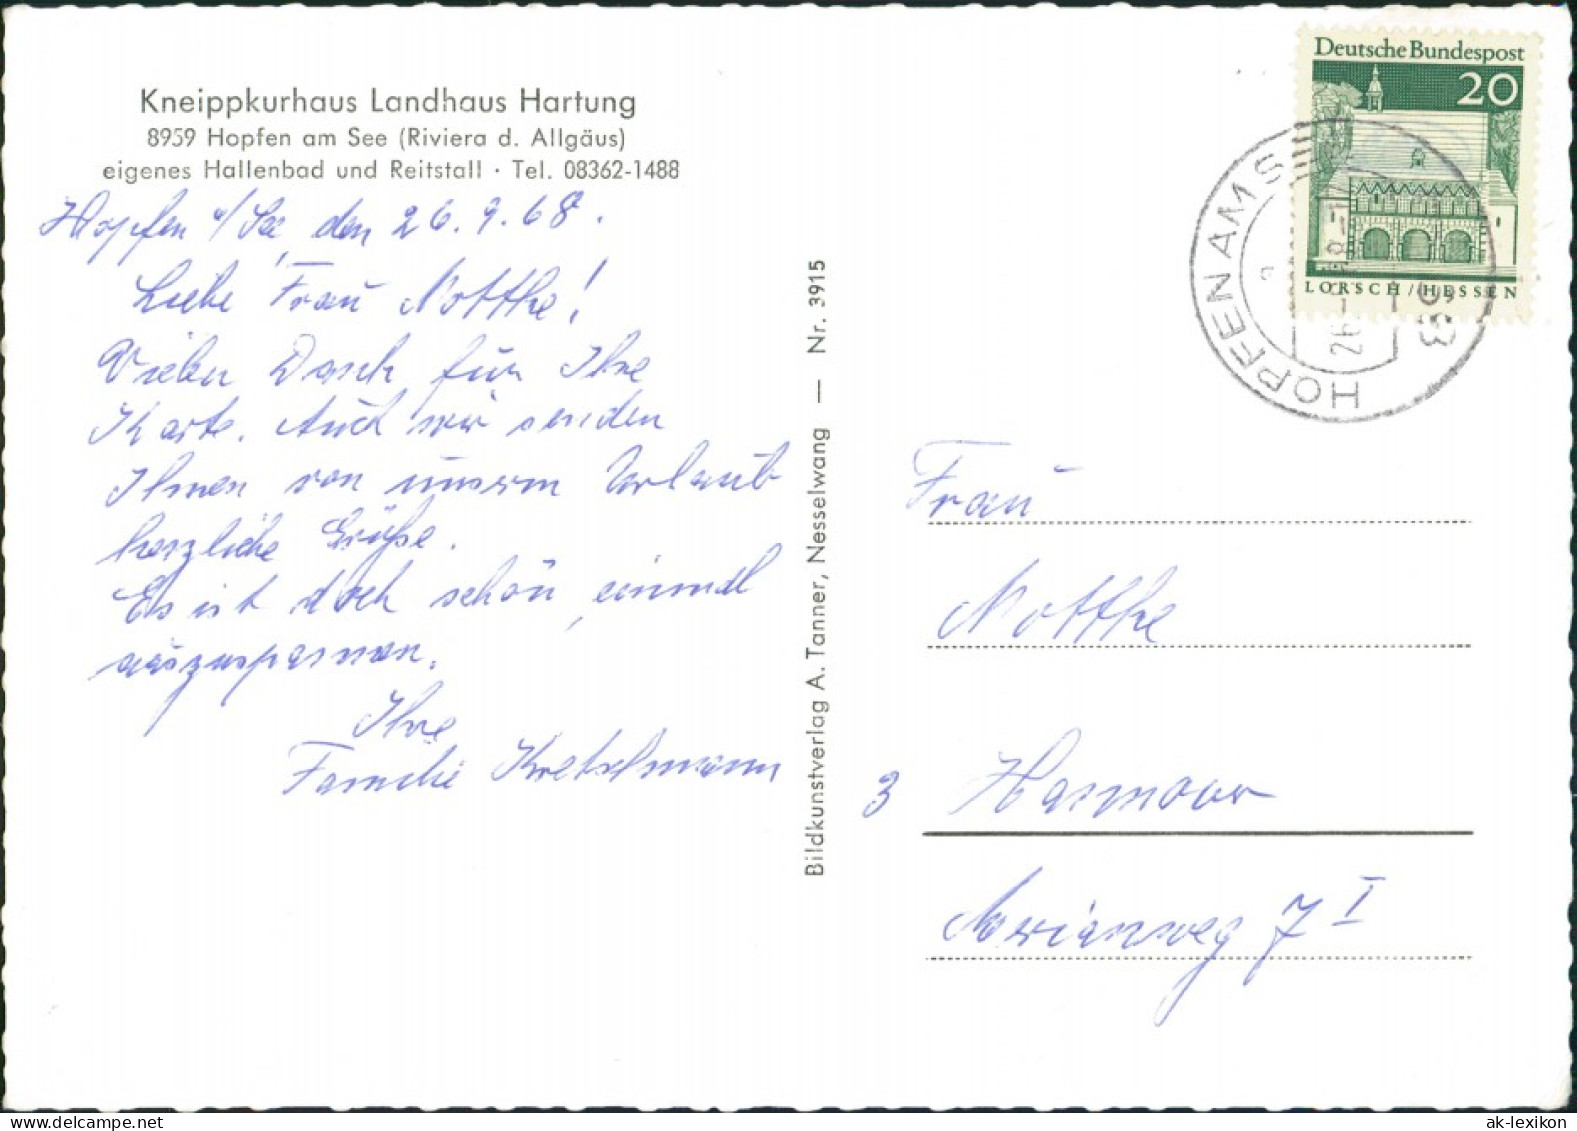 Kneippkurhaus Landhaus Hartung
8959 Hopfen am See (Riviera d. Allgäus)
eigenes Hallenbad und Reitstall · Tel. 08362-1488
Hopfen a/See, den 26.9.68.
Liebe Frau Motthe!
Vielen Dank für Ihre
Karte. Auch wir senden
Ihnen von unserm Urlaub
herzliche Grüße.
Es ist doch schön, einmal
auszuspannen.
Ihre
Familie Kretschmann
Bildkunstverlag A. Tanner, Nesselwang — Nr. 3915
Deutsche Bundespost
20
LORSCH/HESSEN
HOPFEN AM SEE
Frau
Motthe
3 Hannover
Merianweg 7 I
delcampe.net
ak-lexikon